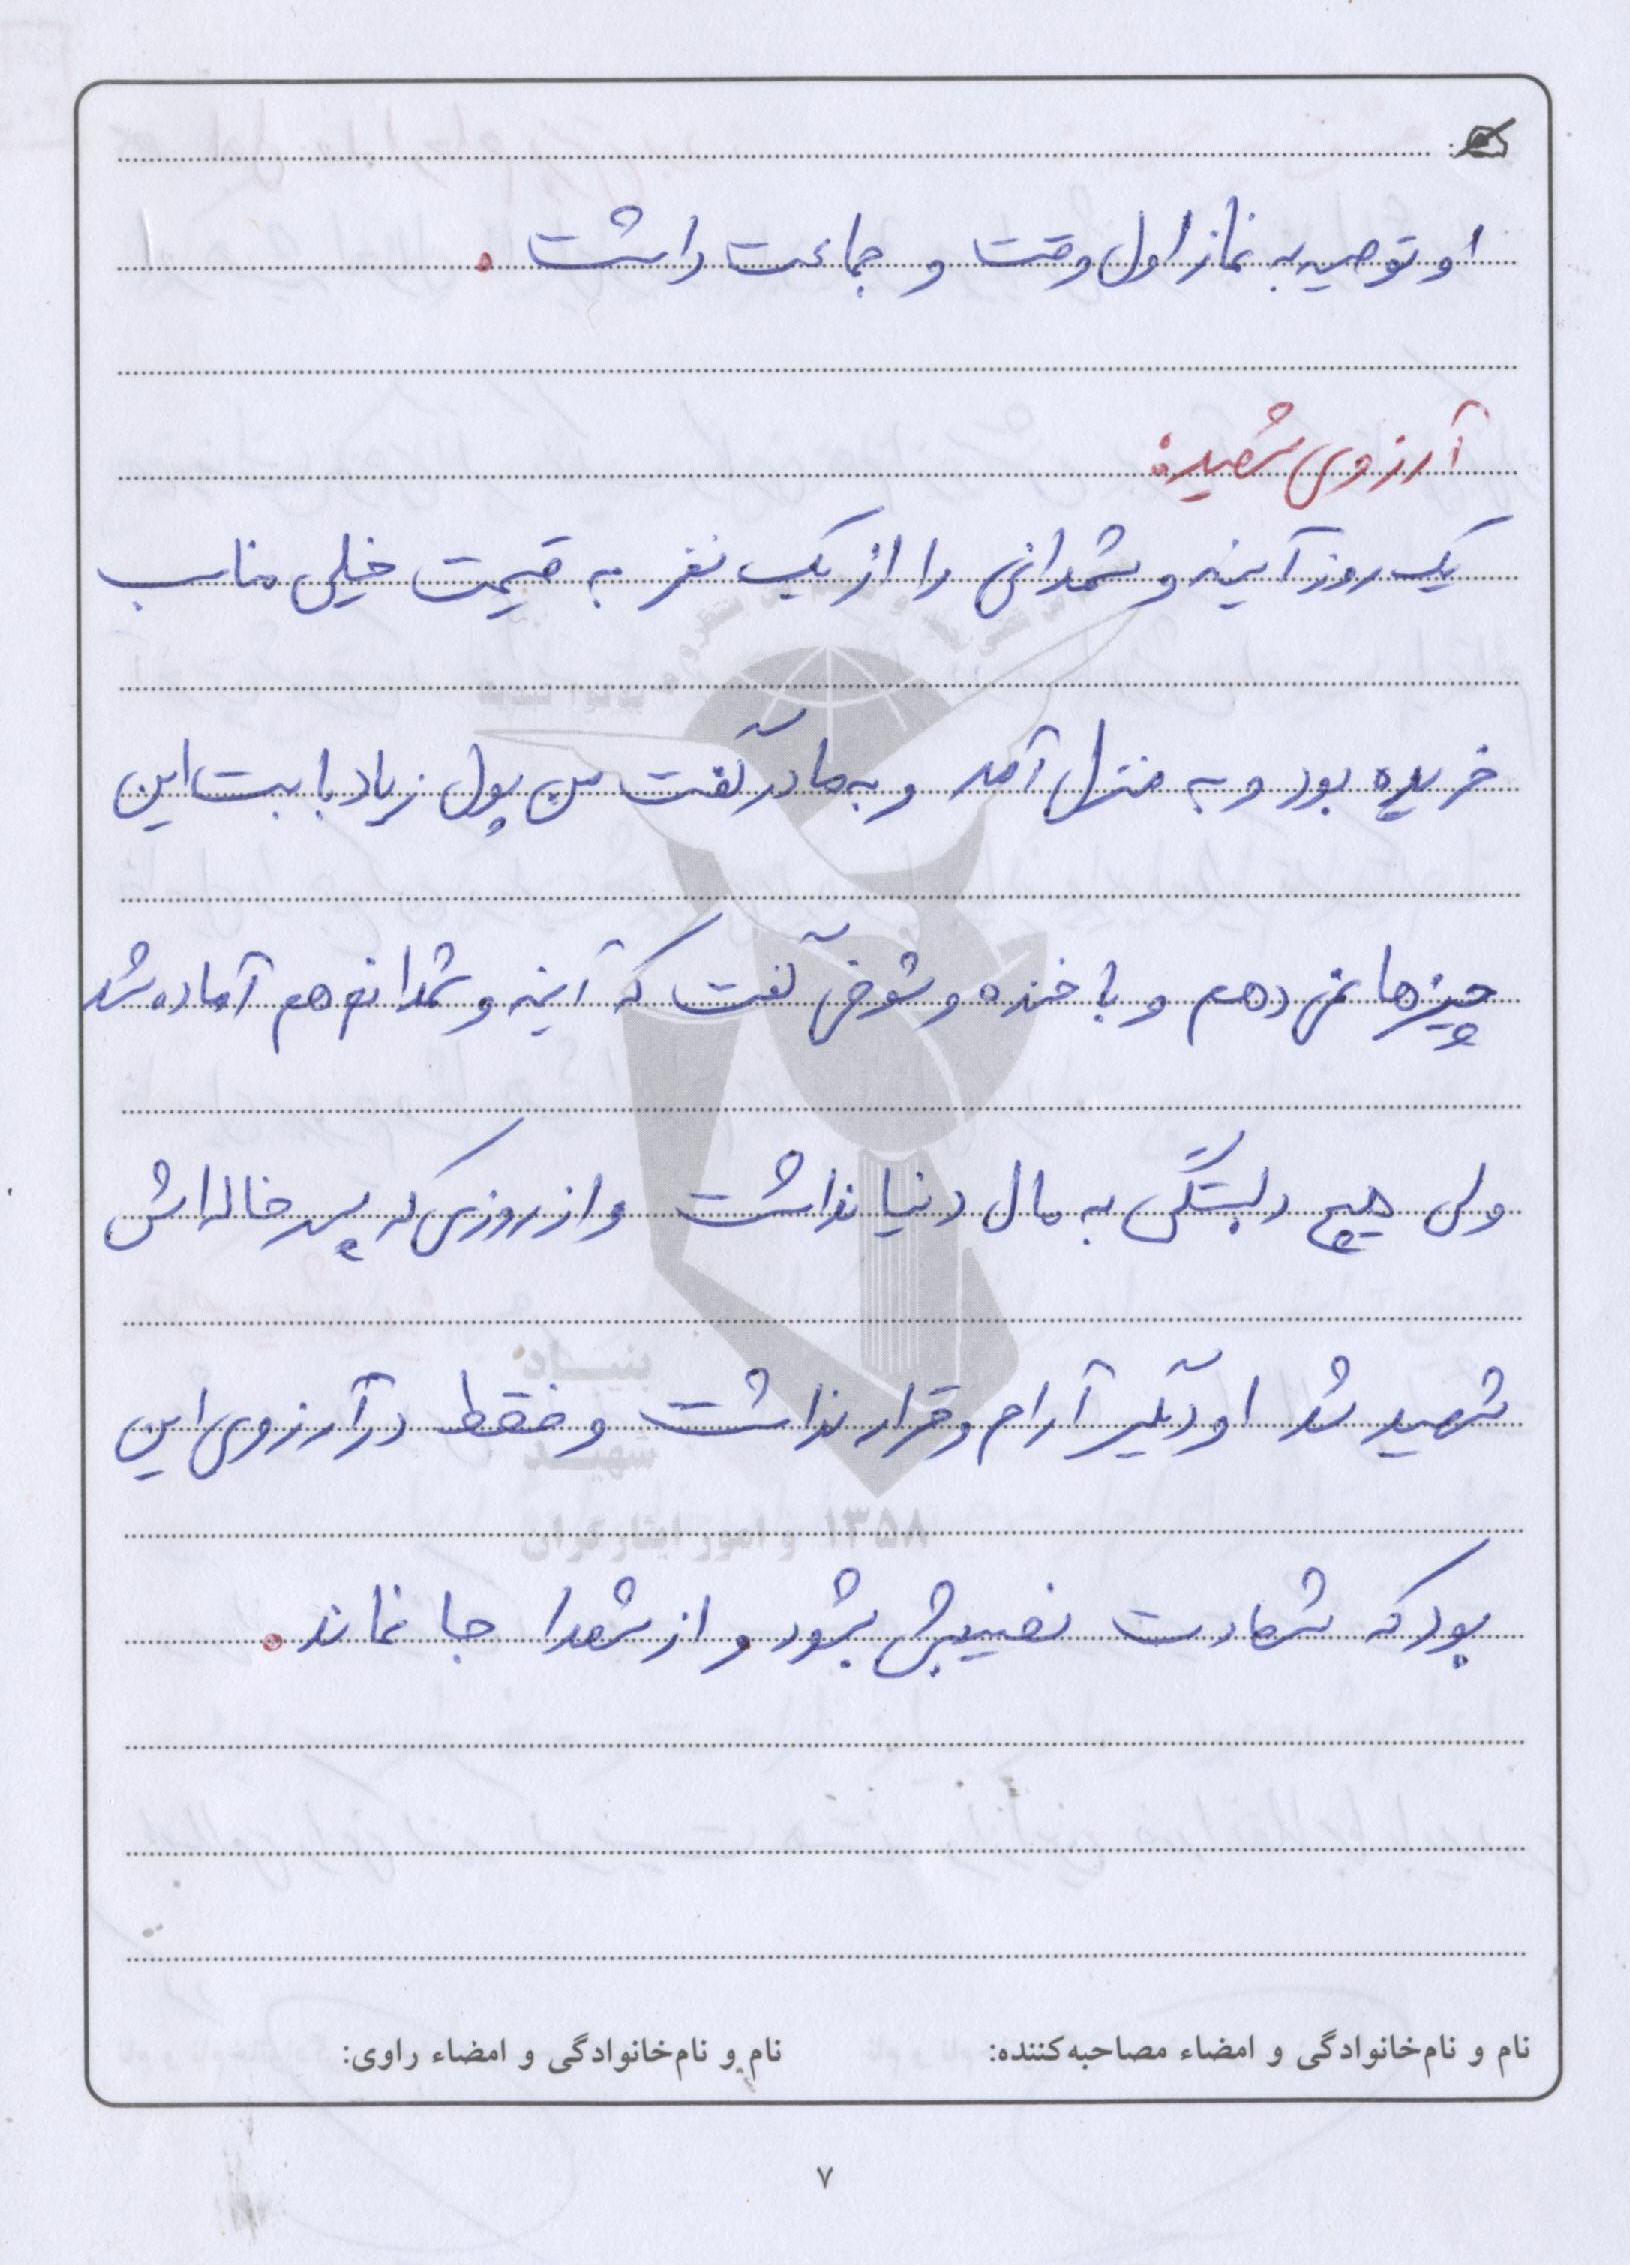 او توصیه به نماز اول وقت و جماعت داشت.
آرزوی شهید:
یک روز آینه و شمدانی را از یک نفر به قیمت خیلی مناسب
خریده بود و به منزل آمد و به مادر گفت من پول زیاد بابت این
چیزها نمی دهم و با خنده و شوخی گفت که آینه و شمدانم هم آماده شد
ولی هیچ دلبستگی به مال دنیا نداشت و از روزی که پسر خاله اش
شهید شد او دیگر آرام و قرار نداشت و فقط در آرزوی این
بود که شهادت نصیبش بشود و از شهدا جا نماند.
بنیاد
شهید
و امور ایثارگران ۱۳۵۸
نام و نام‌خانوادگی و امضاء مصاحبه‌کننده: نام و نام‌خانوادگی و امضاء راوی:
۷